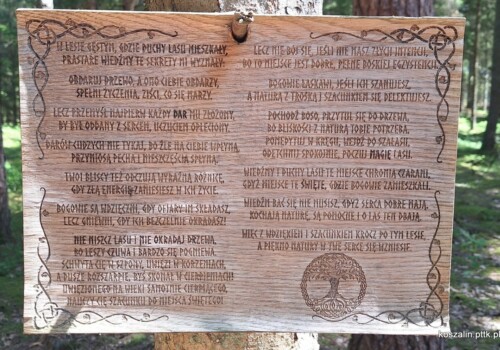 W LESIE GĘSTYM, GDZIE DUCHY LASU MIESZKAŁY,
PRASTARE WIEDŹMY TE SEKRETY MI WYZNAŁY.
OBDARUJ DRZEWO, A ONO CIEBIE OBDARZY,
SPEŁNI ŻYCZENIA, ZIŚCI, CO SIĘ MARZY.
LECZ PRZEMYŚL NAJPIERW KAŻDY DAR MU ZŁOŻONY,
BY BYŁ ODDANY Z SERCEM, UCZUCIEM OPLECIONY.
DARÓW CUDZYCH NIE TYKAJ, BO ŹLE NA CIEBIE WPŁYNĄ,
PRZYNIOSĄ PECHA I NIESZCZĘŚCIA SPŁYNĄ.
TWOI BLISCY TEŻ ODCZUJĄ WYRAŹNĄ ROZNICĘ,
GDY ZŁĄ ENERGIĘ ZANIESIESZ W ICH ŻYCIE.
BOGOWIE SĄ WDZIĘCZNI, GDY OFIARY IM SKŁADASZ,
LECZ GNIEWNI, GDY ICH BEZCZELNIE OKRADASZ!
NIE NISZCZ LASU I NIE OKRADAJ DRZEWA,
BO LESZY CZUWA I BARDZO SIĘ POGNIEWA.
SCHWYTA CIĘ W SZPONY, UWIĘZI W KORZENIACH,
A DUSZĘ ROZSZARPIE, BYŚ SKONAŁ W CIERPIENIACH
UWIĘZIONEGO NA WIEKI SAMOTNIE CIERPIĄCEGO,
NAUCZY CIĘ SZACUNKU DO MIEJSCA ŚWIĘTEGO!
LECZ NIE BÓJ SIĘ, JEŚLI NIE MASZ ZŁYCH INTENCJI,
BO TO MIEJSCE JEST DOBRE, PEŁNE BOSKIEJ EGZYSTENCJI.
BOGOWIE ŁASKAWI, JEŚLI ICH SZANUJESZ,
A NATURĄ Z TROSKĄ I SZACUNKIEM SIĘ DELEKTUJESZ.
POCHODŹ BOSO, PRZYTUL SIĘ DO DRZEWA,
BO BLISKOŚCI Z NATURĄ TOBIE POTRZEBA.
POMEDYTUJ W KRĘGU, WEJDŹ DO SZAŁASU,
ODETCHNIJ SPOKOJNIE, POCZUJ MAGIĘ LASU.
WIEDŹMY I DUCHY LASU TE MIEJSCE CHRONIĄ CZARAMI,
GDYŻ MIEJSCE TE ŚWIĘTE, GDZIE BOGOWIE ZAMIESZKALI.
WIEDŹM BAĆ SIĘ NIE MUSISZ, GDYŻ SERCA DOBRE MAJĄ,
KOCHAJĄ NATURĘ, SĄ POMOCNE I O LAS TEN DBAJĄ.
WIĘC Z WDZIĘKIEM I SZACUNKIEM KROCZ PO TYM LESIE,
A PIĘKNO NATURY W TWE SERCE SIĘ WZNIESIE.
koszalin.pttk.pl